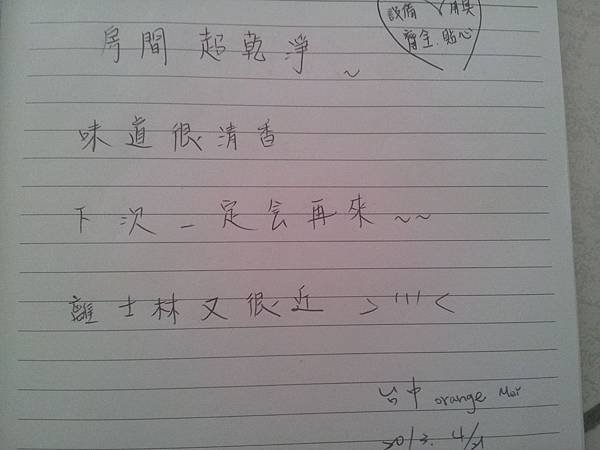 設備 用具
齊全.貼心
房間 超乾淨 ~
味道很清香
下次一定会再來~~
離士林又很近 >'''<
台中 orange Mai
2013. 4/21